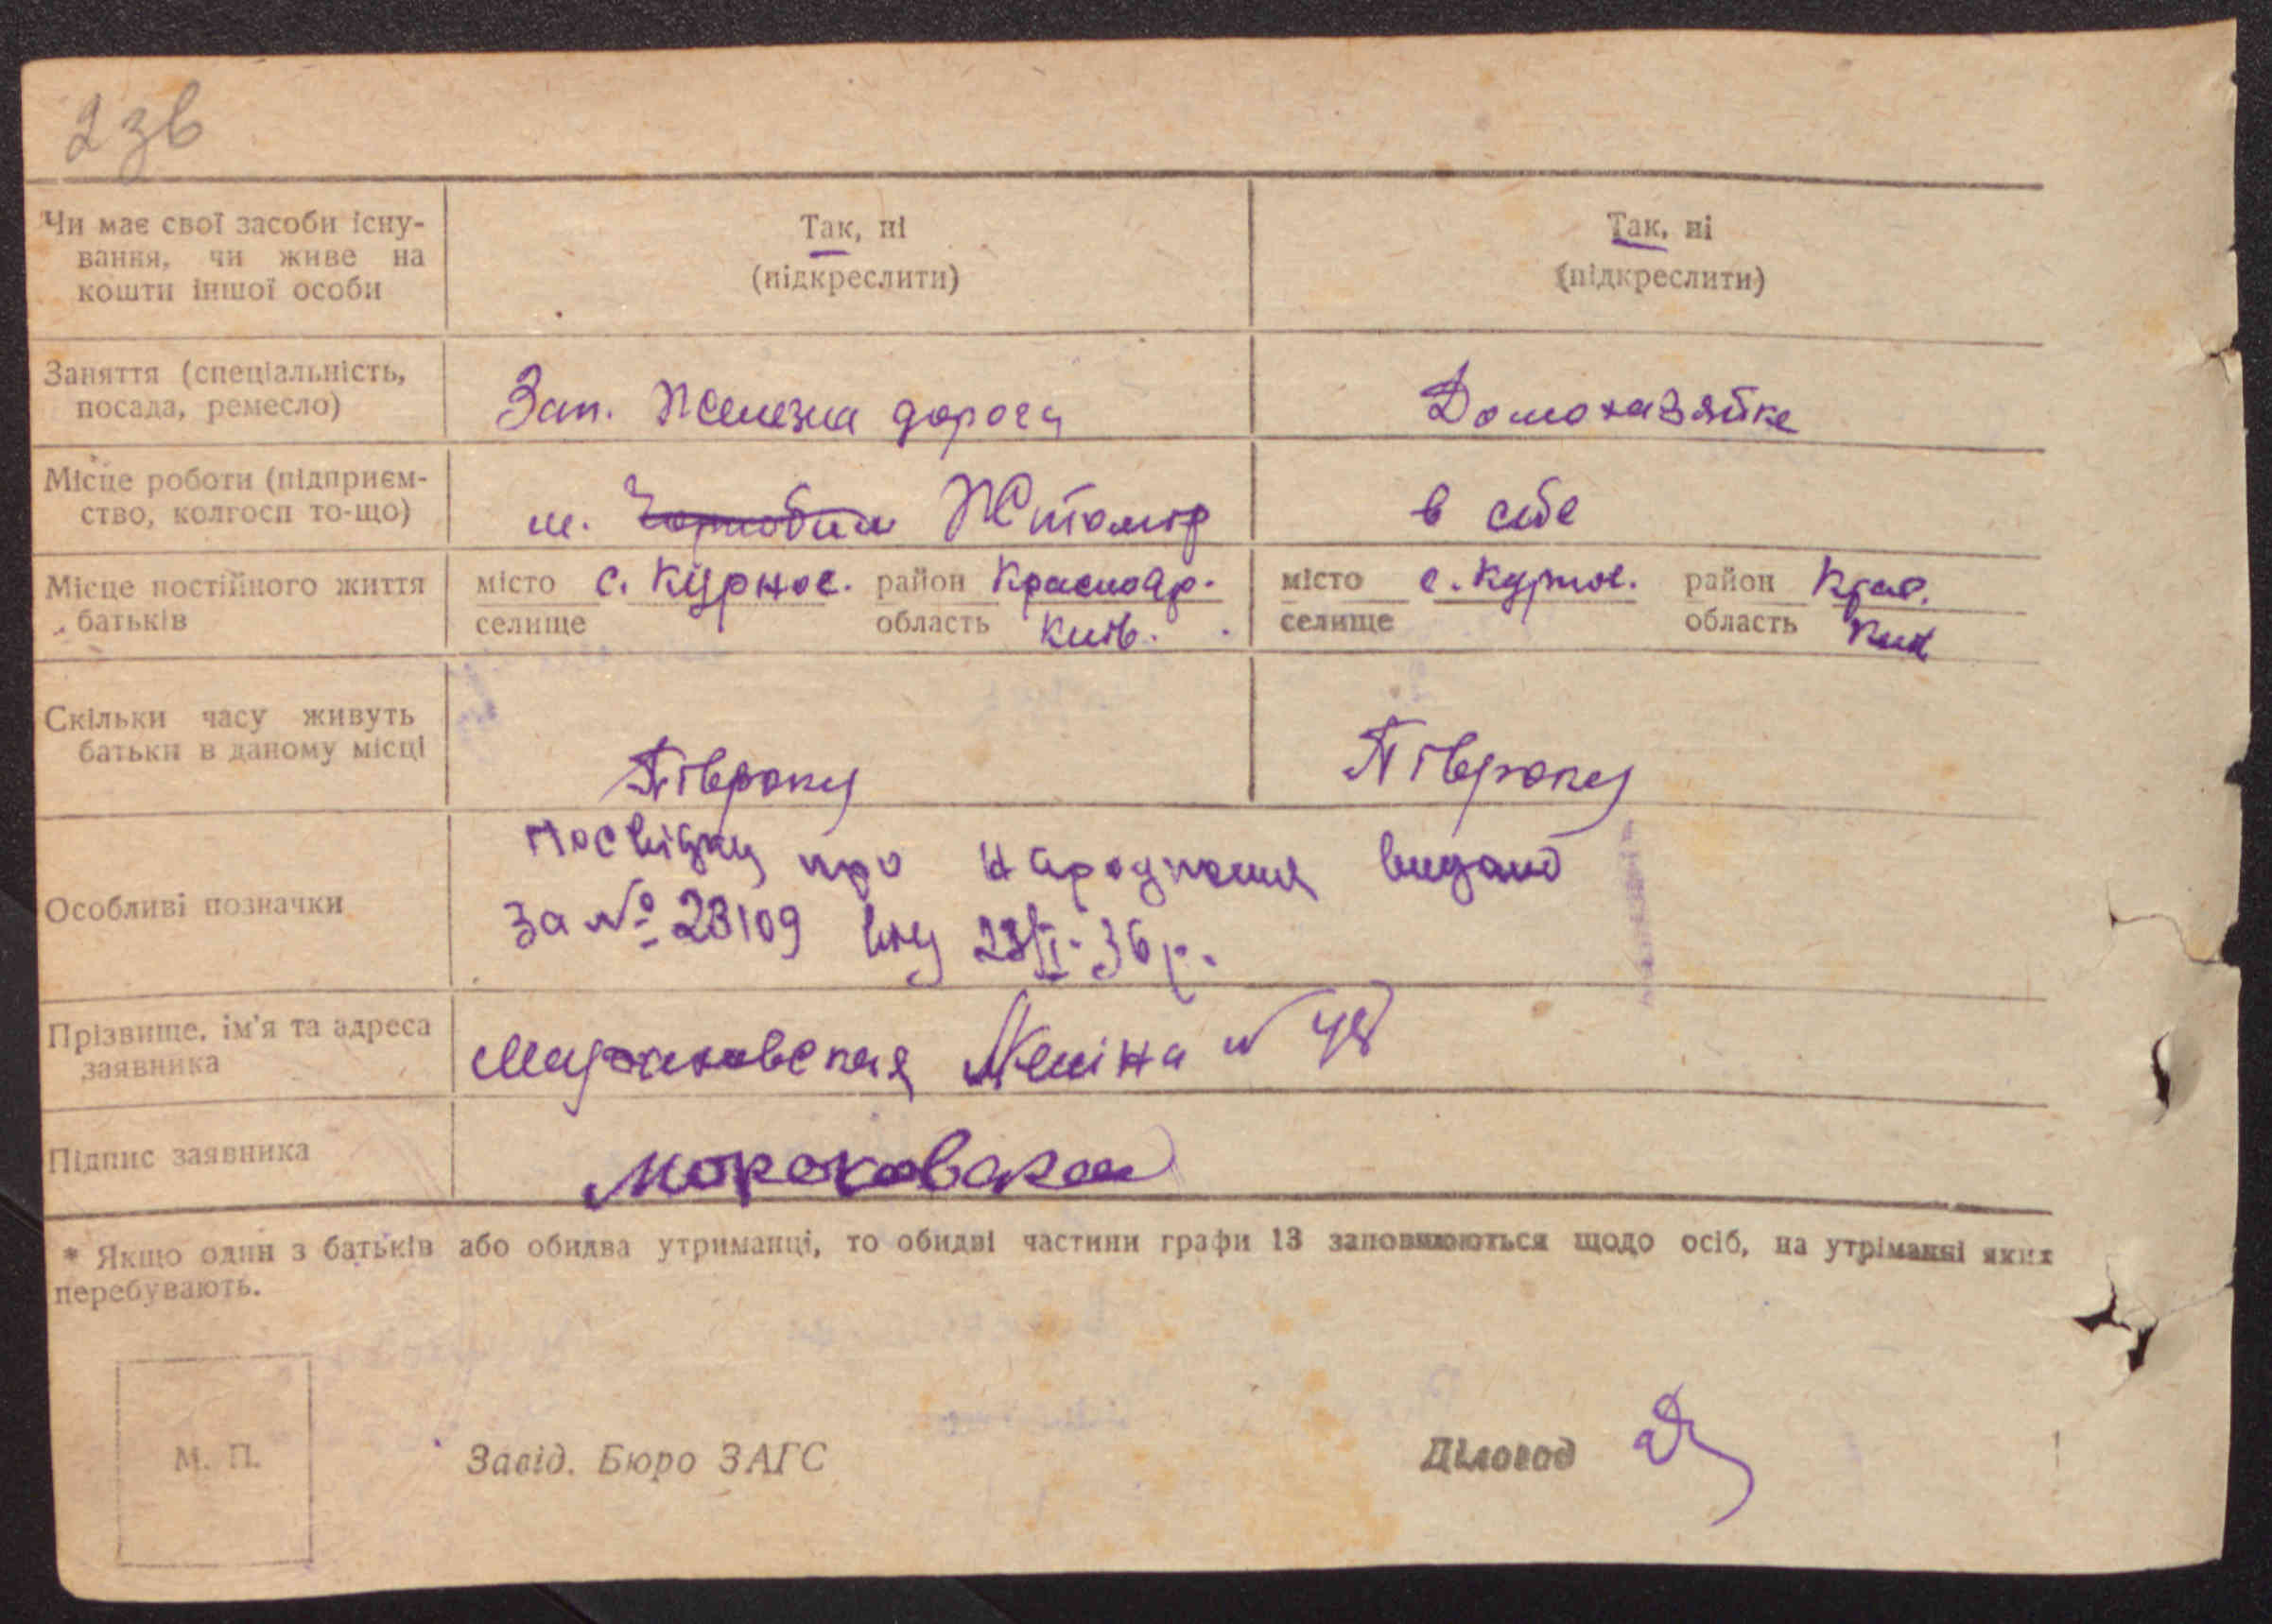 2зв
Чи має свої засоби існу-
вання, чи живе на
кошти іншої особи
Так, ні
(підкреслити)
Так, ні
(підкреслити)
Заняття (спеціальність,
посада, ремесло)
Зап. Железна дорога
Домохазяйке
Місце роботи (підприєм-
ство, колгосп то-що)
м. Чорнобил Жтомір
в себе
Місце постійного життя
батьків
місто с. Курное. район Краснояр.
селище область Київ.
місто с. Курное. район Крас.
селище область Київ
Скільки часу живуть
батьки в даному місці
Півроку
Півроку
Особливі позначки
Посвідку про народження видано
За № 23109 від 23/І-36 р.
Прізвище, ім'я та адреса
заявника
Леніна № 48
Підпис заявника
Мороховская
* Якщо один з батьків або обидва утриманці, то обидві частини графи 13 заповнюються щодо осіб, на утріманні яких
перебувають.
М. П.
Завід. Бюро ЗАГС
Діловод